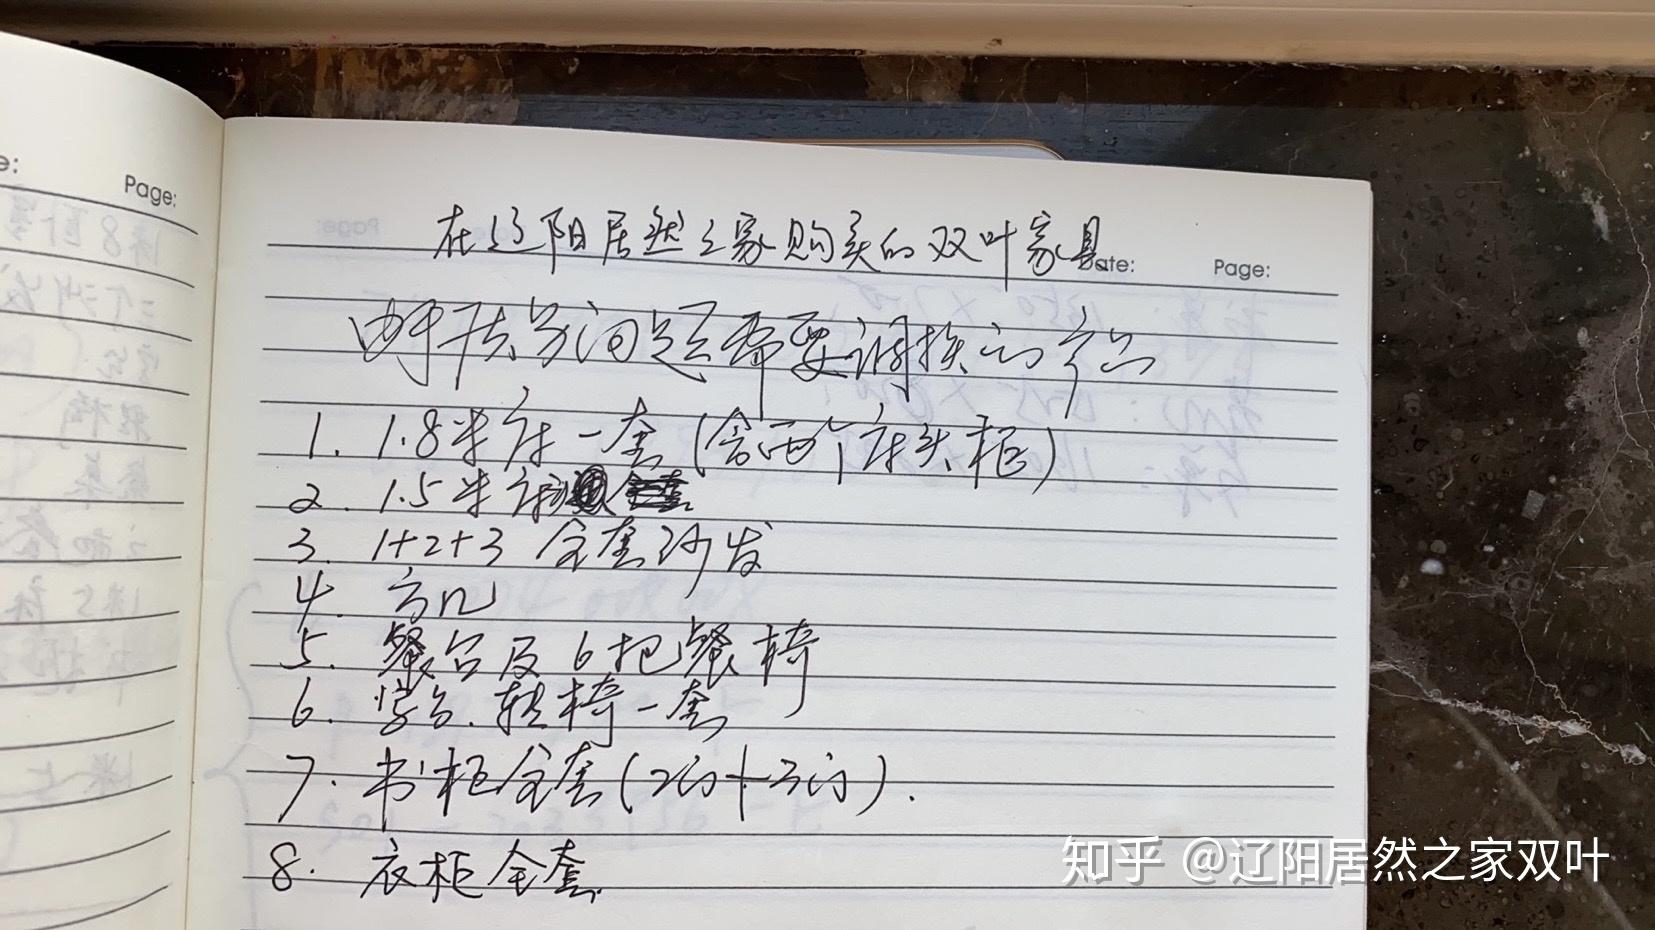 e:
Page:
在辽阳居然之家购买的双叶家具
Date:
Page:
由于质量问题需要调换的产品
1. 1.8米床一套(含两个床头柜)
2. 1.5米床
3. 1+2+3 全套沙发
4. 方几
5. 餐台及6把餐椅
6. 学台.转椅一套
7. 书柜全套(2门+3门).
8. 衣柜全套.
知乎 @辽阳居然之家双叶